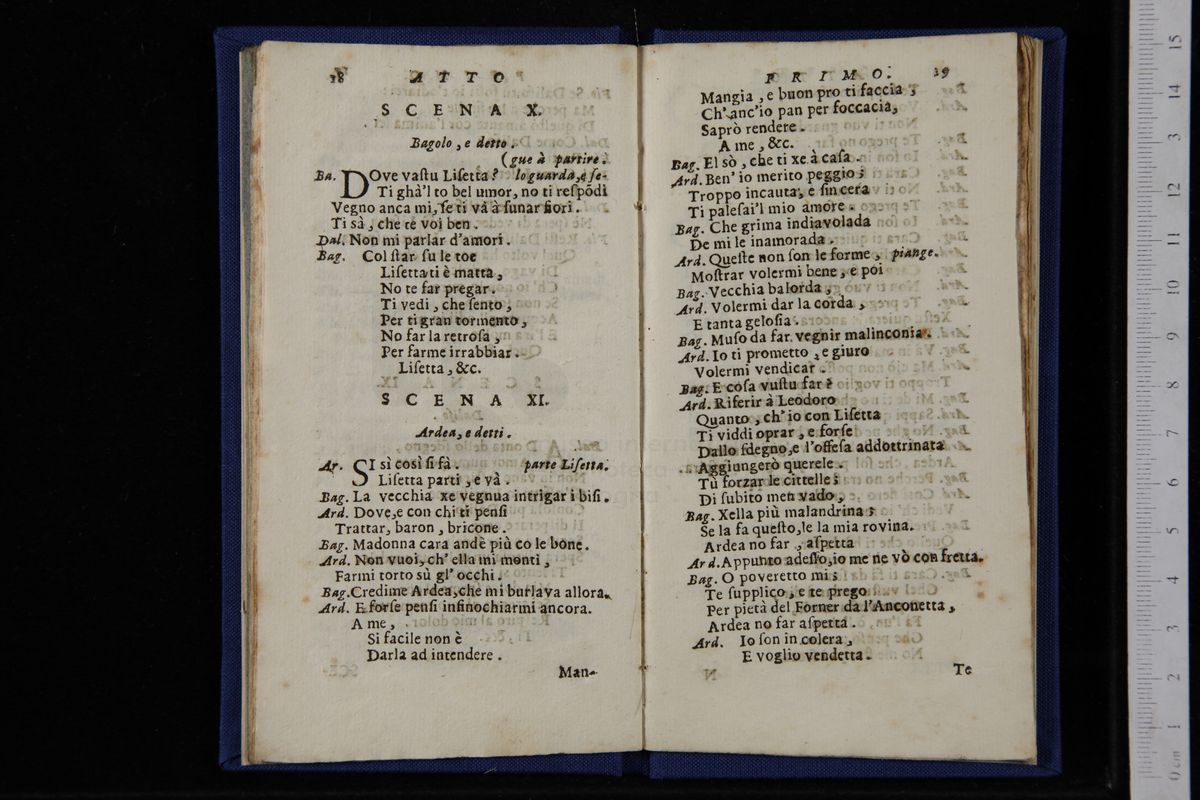 18 ATTO
SCENA X.
Bagolo, e detto.
(gue à partire.
Ba. DOve vaſtu Liſetta? lo guarda, e ſe-
Ti ghà'l to bel umor, no ti reſpõdi
Vegno anca mi, ſe ti và à ſunar fiori.
Ti sà, che te voi ben.
Dal. Non mi parlar d'amori.
Bag. Col ſtar ſu le toe
Liſetta ti è matta,
No te far pregar.
Ti vedi, che ſento,
Per ti gran tormento,
No far la retroſa,
Per farme irrabbiar.
Liſetta, &c.
SCENA XI.
Ardea, e detti.
Ar. SI sì così ſi fà. parte Liſetta.
Liſetta parti, e và.
Bag. La vecchia xe vegnua intrigar i biſi.
Ard. Dove, e con chi ti penſi
Trattar, baron, bricone.
Bag. Madonna cara andè più co le bone.
Ard. Non vuoi, ch' ella mi monti,
Farmi torto sù gl' occhi.
Bag. Credime Ardea, che mi burlava allora.
Ard. E forſe penſi infinochiarmi ancora.
A me,
Si facile non è
Darla ad intendere.
Man-
PRIMO. 19
Mangia, e buon pro ti faccia;
Ch' anc'io pan per foccacia,
Saprò rendere.
A me, &c.
Bag. El sò, che ti xe à caſa.
Ard. Ben' io merito peggio;
Troppo incauta, e ſincera
Ti paleſai'l mio amore.
Bag. Che grima indiavolada
De mi le inamorada.
Ard. Queſte non ſon le forme, piange.
Moſtrar volermi bene, e poi
Bag. Vecchia balorda,
Ard. Volermi dar la corda,
E tanta geloſia.
Bag. Muſo da far vegnir malinconia.
Ard. Io ti prometto, e giuro
Volermi vendicar.
Bag. E coſa vuſtu far?
Ard. Riferir à Leodoro
Quanto, ch' io con Liſetta
Ti viddi oprar, e forſe
Dallo ſdegno, e l'offeſa addottrinata
Aggiungerò querele.
Tù forzar le cittelle;
Di ſubito men vado,
Bag. Xella più malandrina;
Se la fa queſto, le la mia rovina.
Ardea no far, aſpetta
Ard. Appunto adeſſo, io me ne vò con fretta.
Bag. O poveretto mi;
Te ſupplico, e te prego
Per pietà del Forner da l'Anconetta,
Ardea no far aſpetta.
Ard. Io ſon in colera,
E voglio vendetta.
Te